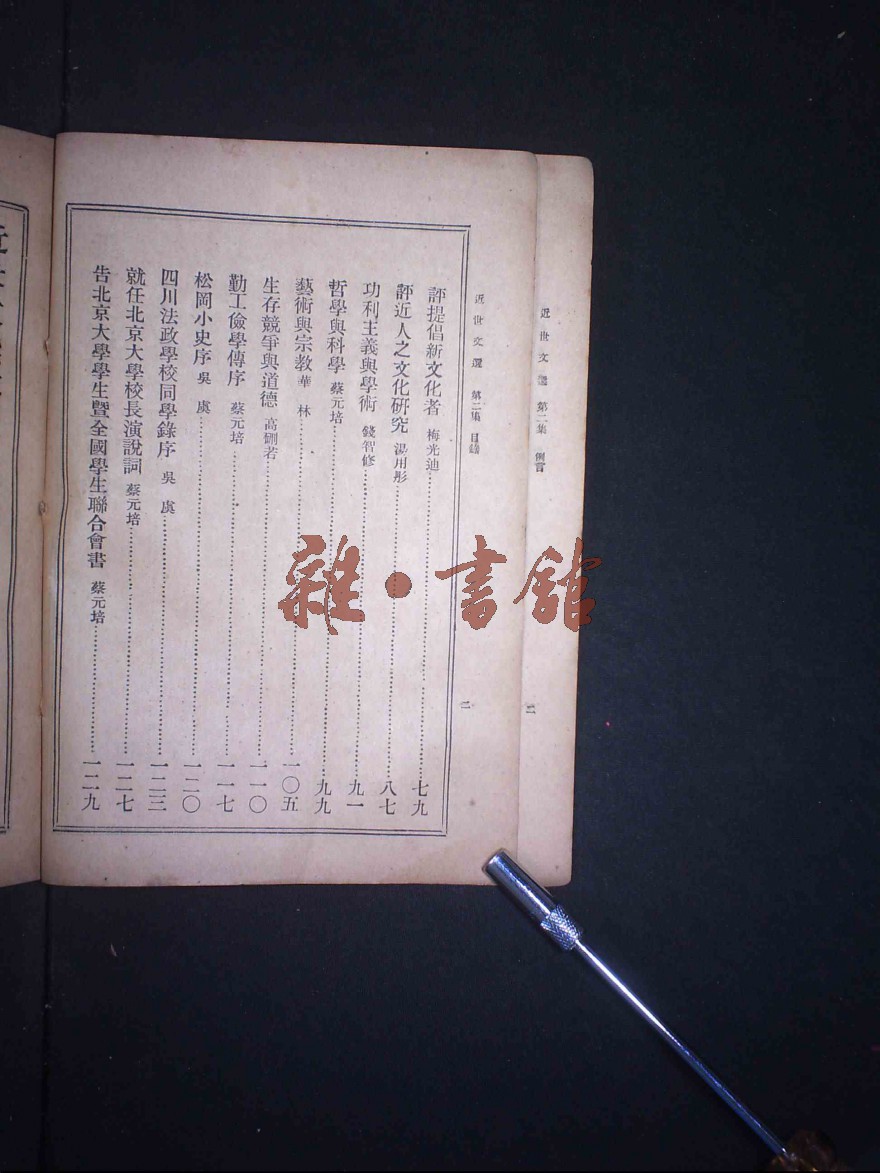 近世文選 第二集 例言
三
近世文選 第二集 目錄
二
評提倡新文化者 梅光迪 七九
評近人之文化研究 湯用彤 八七
功利主義與學術 錢智修 九一
哲學與科學 蔡元培 九九
藝術與宗教 華林 一〇五
生存競爭與道德 高劘若 一一〇
勤工儉學傳序 蔡元培 一一七
松岡小史序 吳虞 一二〇
四川法政學校同學錄序 吳虞 一二三
就任北京大學校長演說詞 蔡元培 一二七
告北京大學學生暨全國學生聯合會書 蔡元培 一二九
雜·書館